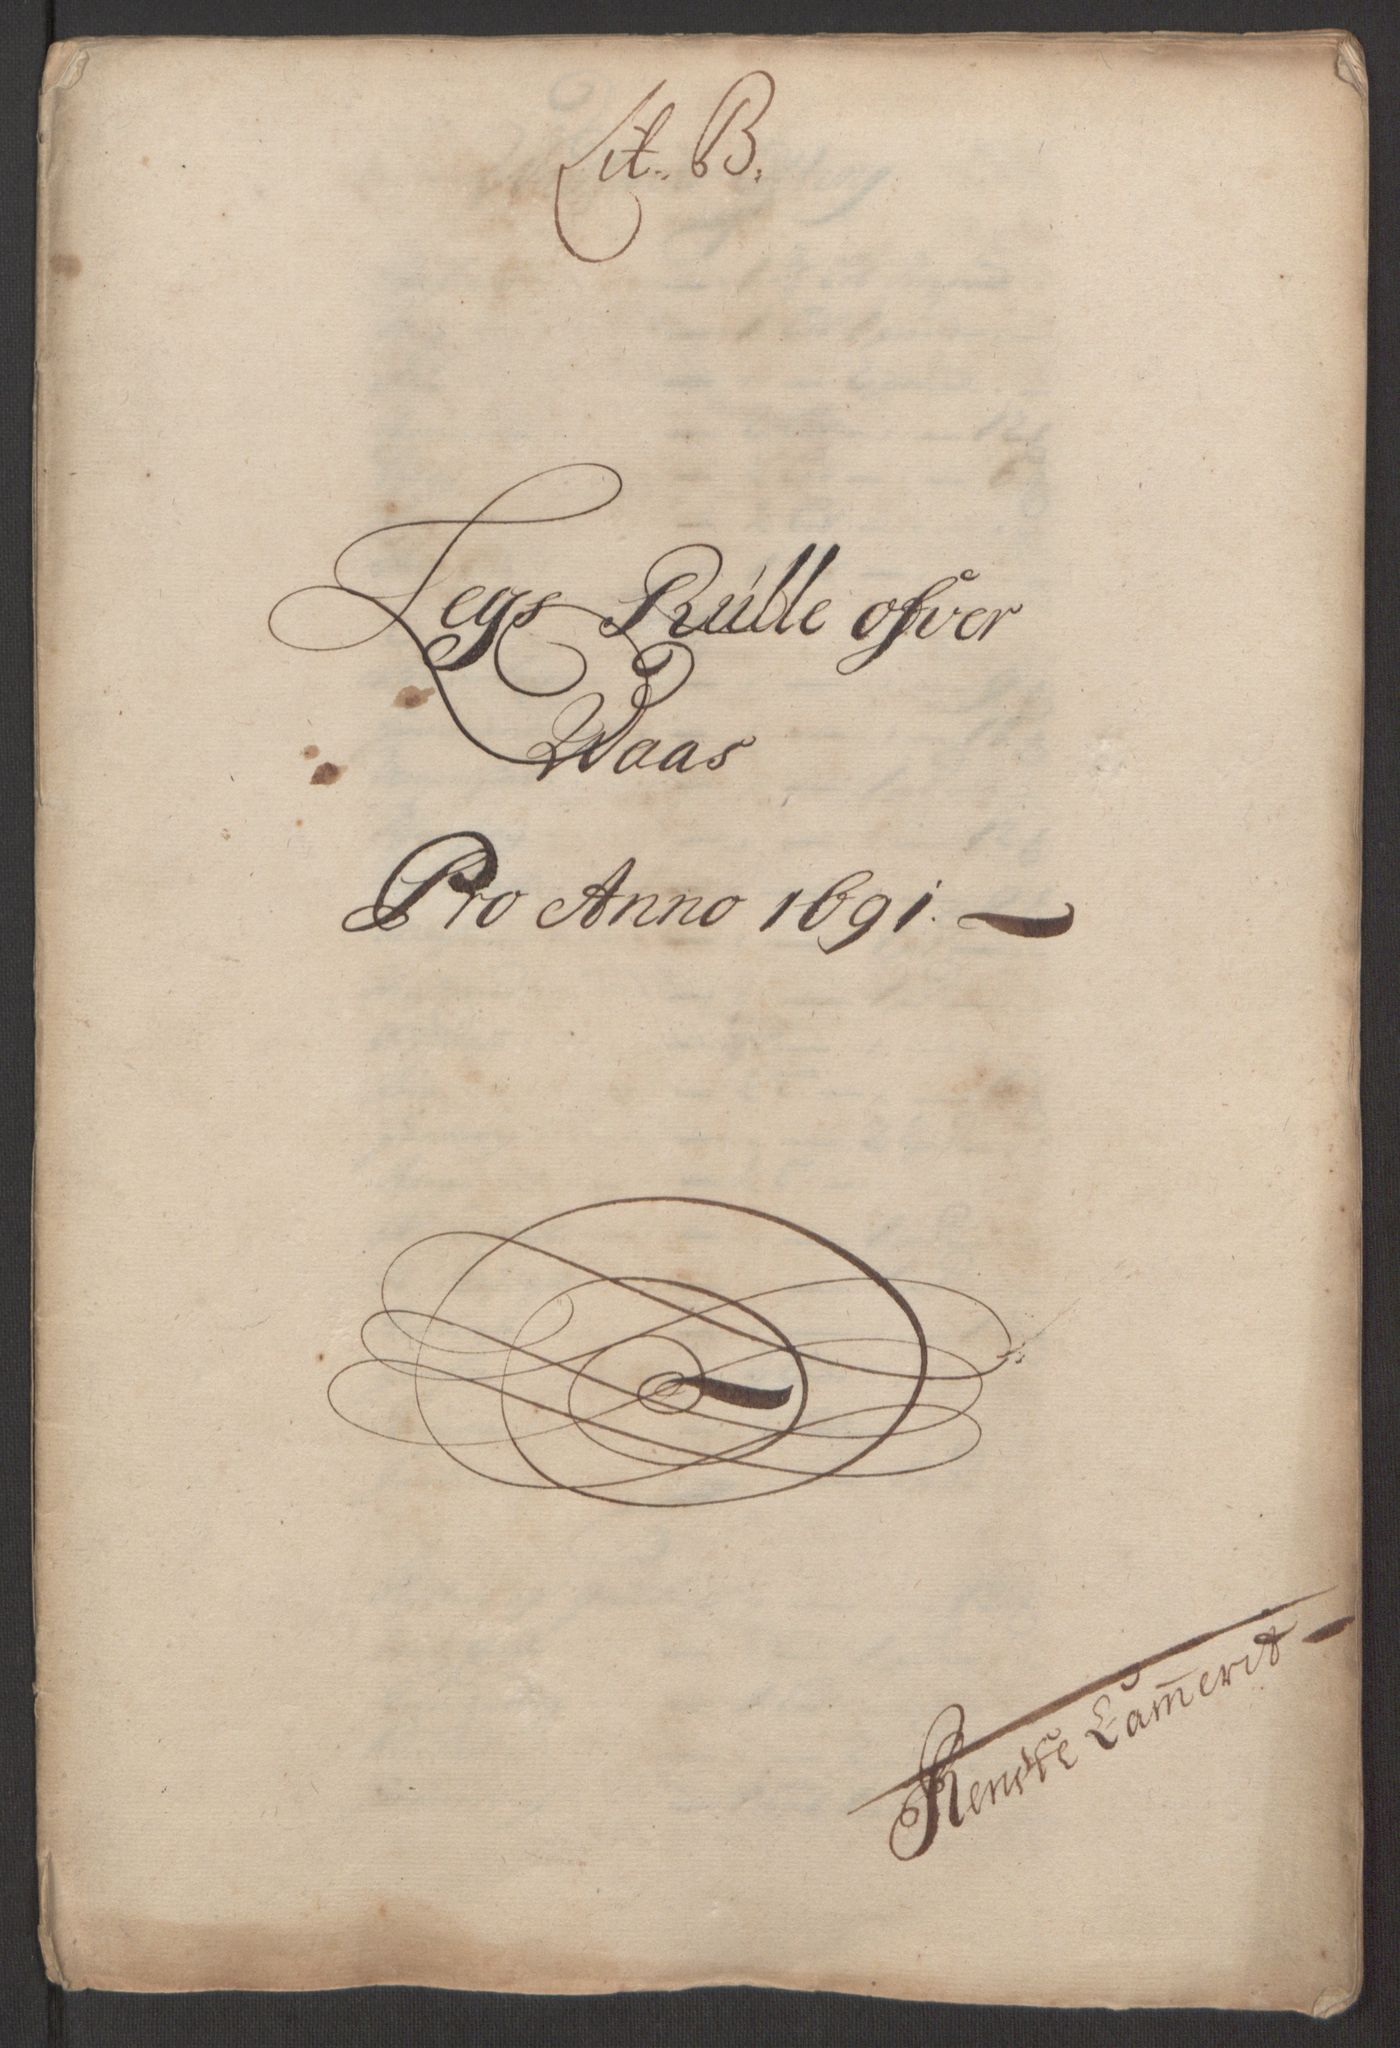 Lit. B.
Legs Rúlle ofver
Waas
Pro Anno 1691.
Rentte Cam̄erit